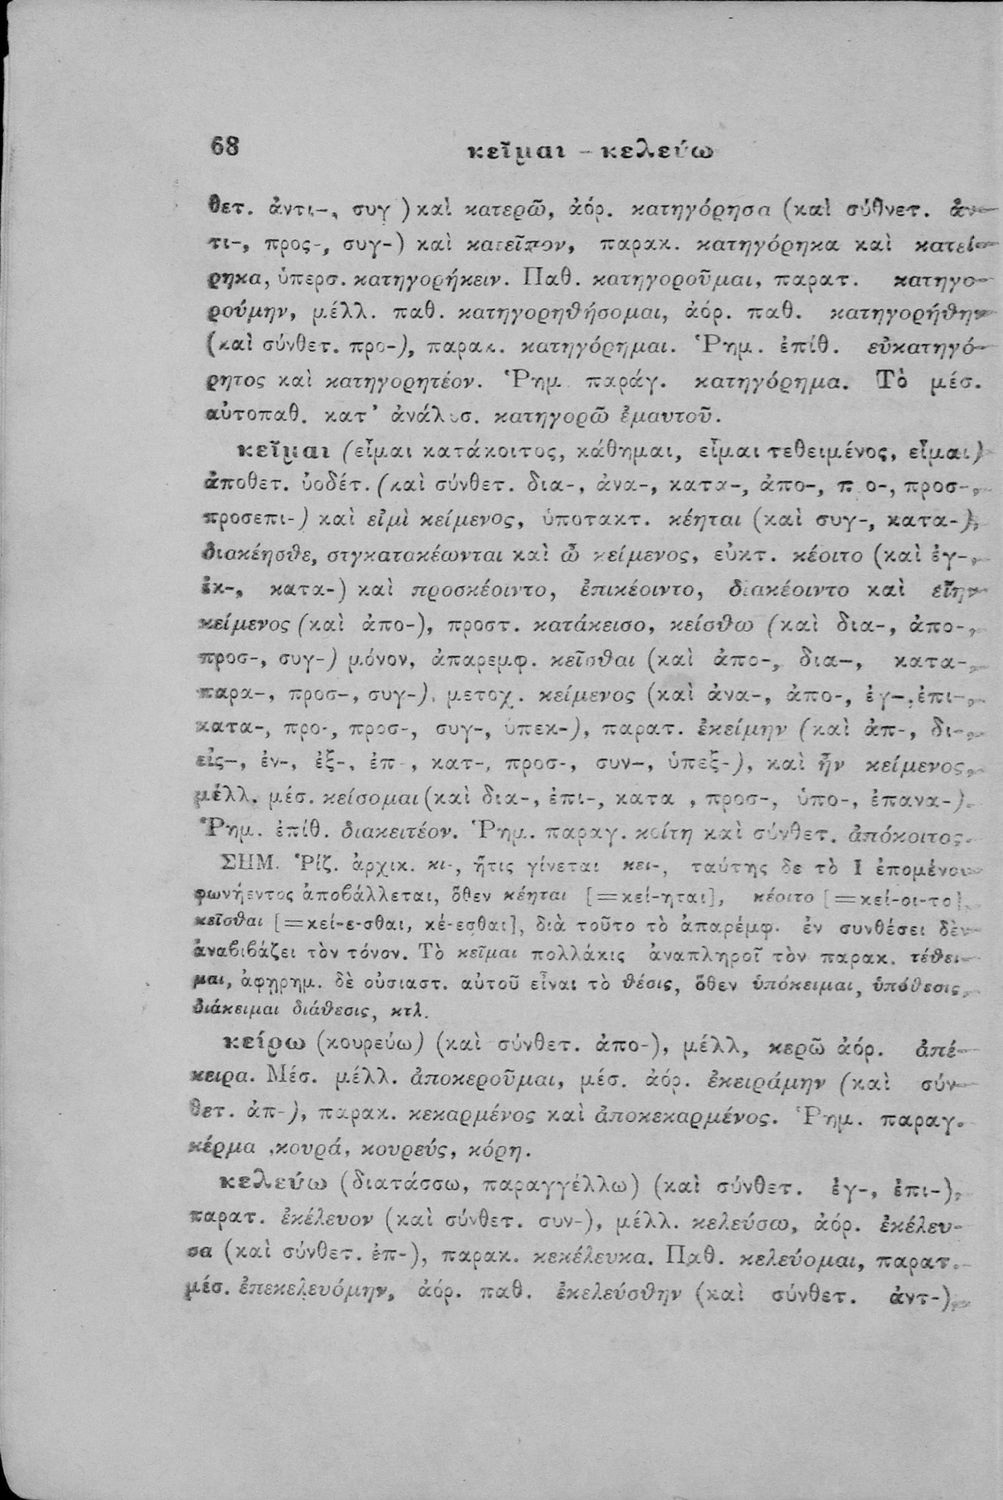 68
κεῖμαι – κελεύω
θετ. ἀντι-, συγ ) καὶ κατερῶ, ἀόρ. κατηγόρησα (καὶ σύθνετ. ἀν-
τι-, προς-, συγ-) καὶ κατεῖπον, παρακ. κατηγόρηκα καὶ κατεί-
ρηκα, ὑπερσ. κατηγορήκειν. Παθ. κατηγοροῦμαι, παρατ. κατηγο-
ρούμην, μέλλ. παθ. κατηγορηθήσομαι, ἀόρ. παθ. κατηγορήθην
(καὶ σύνθετ. προ-), παρακ. κατηγόρημαι. Ῥημ. ἐπίθ. εὐκατηγό-
ρητος καὶ κατηγορητέον. Ῥημ. παράγ. κατηγόρημα. Τὸ μέσ.
αὐτοπαθ. κατ' ἀνάλυσ. κατηγορῶ ἐμαυτοῦ.
κεῖμαι (εἶμαι κατάκοιτος, κάθημαι, εἶμαι τεθειμένος, εἶμαι)
ἀποθετ. ὑοδέτ. (καὶ σύνθετ. δια-, ἀνα-, κατα-, ἀπο-, π ο-, προσ-,
προσεπι-) καὶ εἰμὶ κείμενος, ὑποτακτ. κέηται (καὶ συγ-, κατα-),
διακέησθε, στγκατακέωνται καὶ ὦ κείμενος, εὐκτ. κέοιτο (καὶ ἐγ-,
ἐκ-, κατα-) καὶ προσκέοιντο, ἐπικέοιντο, διακέοιντο καὶ εἴην
κείμενος (καὶ ἀπο-), προστ. κατάκεισο, κείσθω (καὶ δια-, ἀπο-,
προσ-, συγ-) μόνον, ἀπαρεμφ. κεῖσθαι (καὶ ἀπο-, δια-, κατα-,
παρα-, προσ-, συγ-), μετοχ. κείμενος (καὶ ἀνα-, ἀπο-, ἐγ-, ἐπι-,
κατα-, προ-, προσ-, συγ-, ὑπεκ-), παρατ. ἐκείμην (καὶ ἀπ-, δι-,
εἰς-, ἐν-, ἐξ-, ἐπ-, κατ-, προσ-, συν-, ὑπεξ-), καὶ ἦν κείμενος,
μέλλ. μέσ. κείσομαι (καὶ δια-, ἐπι-, κατα , προσ-, ὑπο-, ἐπανα-).
Ῥημ. ἐπίθ. διακειτέον. Ῥημ. παραγ. κοίτη καὶ σύνθετ. ἀπόκοιτος.
ΣΗΜ. Ῥίζ. ἀρχικ. κι-, ἥτις γίνεται κει-, ταύτης δε τὸ Ι ἐπομένου
φωνήεντος ἀποβάλλεται, ὅθεν κέηται [=κεί-ηται], κέοιτο [=κεί-οι-το],
κεῖσθαι [=κεί-ε-σθαι, κέ-εσθαι], διὰ τοῦτο τὸ ἀπαρέμφ. ἐν συνθέσει δὲν
ἀναβιβάζει τὸν τόνον. Τὸ κεῖμαι πολλάκις ἀναπληροῖ τὸν παρακ. τέθει-
μαι, ἀφῃρημ. δὲ οὐσιαστ. αὐτοῦ εἶναι τὸ θέσις, ὅθεν ὑπόκειμαι, ὑπόθεσις,
διάκειμαι διάθεσις, κτλ.
κείρω (κουρεύω) (καὶ σύνθετ. ἀπο-), μέλλ, κερῶ ἀόρ. ἀπέ-
κειρα. Μέσ. μέλλ. ἀποκεροῦμαι, μέσ. ἀόρ. ἐκειράμην (καὶ σύν-
θετ. ἀπ-), παρακ. κεκαρμένος καὶ ἀποκεκαρμένος. Ῥημ. παραγ.
κέρμα ,κουρά, κουρεύς, κόρη.
κελεύω (διατάσσω, παραγγέλλω) (καὶ σύνθετ. ἐγ-, ἐπι-),
παρατ. ἐκέλευον (καὶ σύνθετ. συν-), μέλλ. κελεύσω, ἀόρ. ἐκέλευ-
σα (καὶ σύνθετ. ἐπ-), παρακ. κεκέλευκα. Παθ. κελεύομαι, παρατ.
μέσ. ἐπεκελευόμην, ἀόρ. παθ. ἐκελεύσθην (καὶ σύνθετ. ἀντ-),